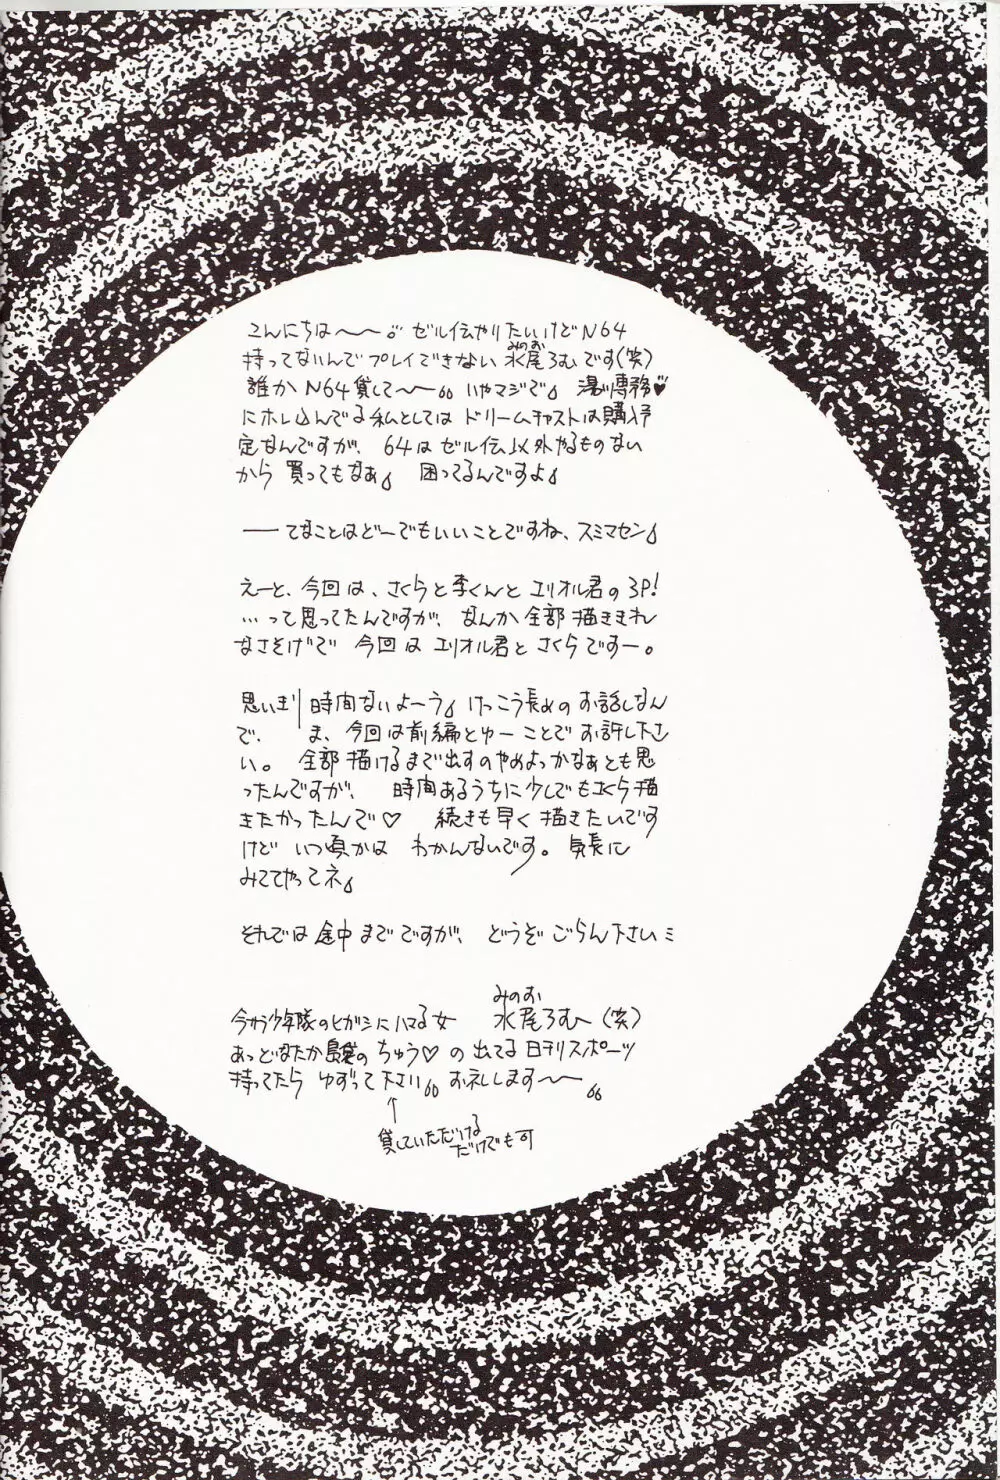 こんにちは〜〜 ゼル伝やりたいけど N64
みのお
持ってないんで プレイできない 水尾ろむです(笑)
誰か N64 貸して〜〜 いやマジで 湯川専務♡
にホレ込んでる私としては ドリームキャストは購入予
定なんですが、 64は ゼル伝以外やるものない
から 買ってもなぁ 困ってるんですよ
── てなことはどーでもいいことですね、スミマセン
えーと、今回は、さくらと李くんと エリオル君の 3P!
…って思ってたんですが、なんか全部描ききれ
なさそげで 今回は エリオル君と さくらですー。
思いきり時間ないよーう けっこう長めのお話しなん
で、 ま、今回は前編とゆーことでお許し下さ
い。 全部描けるまで出すのやめよっかなぁとも思
ったんですが、 時間あるうちに少しでもさくら描
きたかったんで♡ 続きも早く描きたいです
けど いつ頃かは わかんないです。気長に
みててやってネ
それでは 途中までですが、 どうぞ ごらん下さい
みのお
今から少年隊のヒガシにハマる女 水尾ろむ〜(笑)
あっどなたか のちゅう♡の出てる 日刊スポーツ
持ってたら ゆずって下さい お礼します〜〜
↑
貸していただける
だけでも可